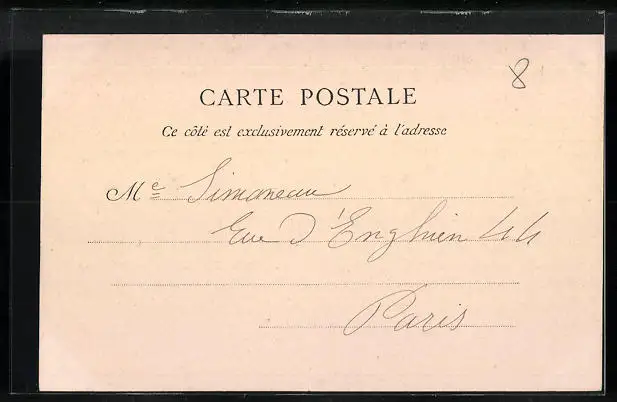 8
CARTE POSTALE
Ce côté est exclusivement réservé à l'adresse
Me Simoneau
Rue D'Enghien 44
Paris